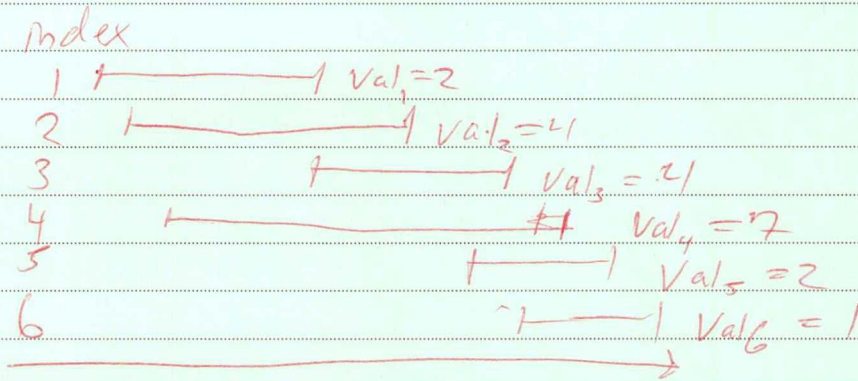 index
1 Val₁=2
2 Val₂=4
3 Val₃=4
4 Val₄=7
5 Val₅=2
6 Val₆=1